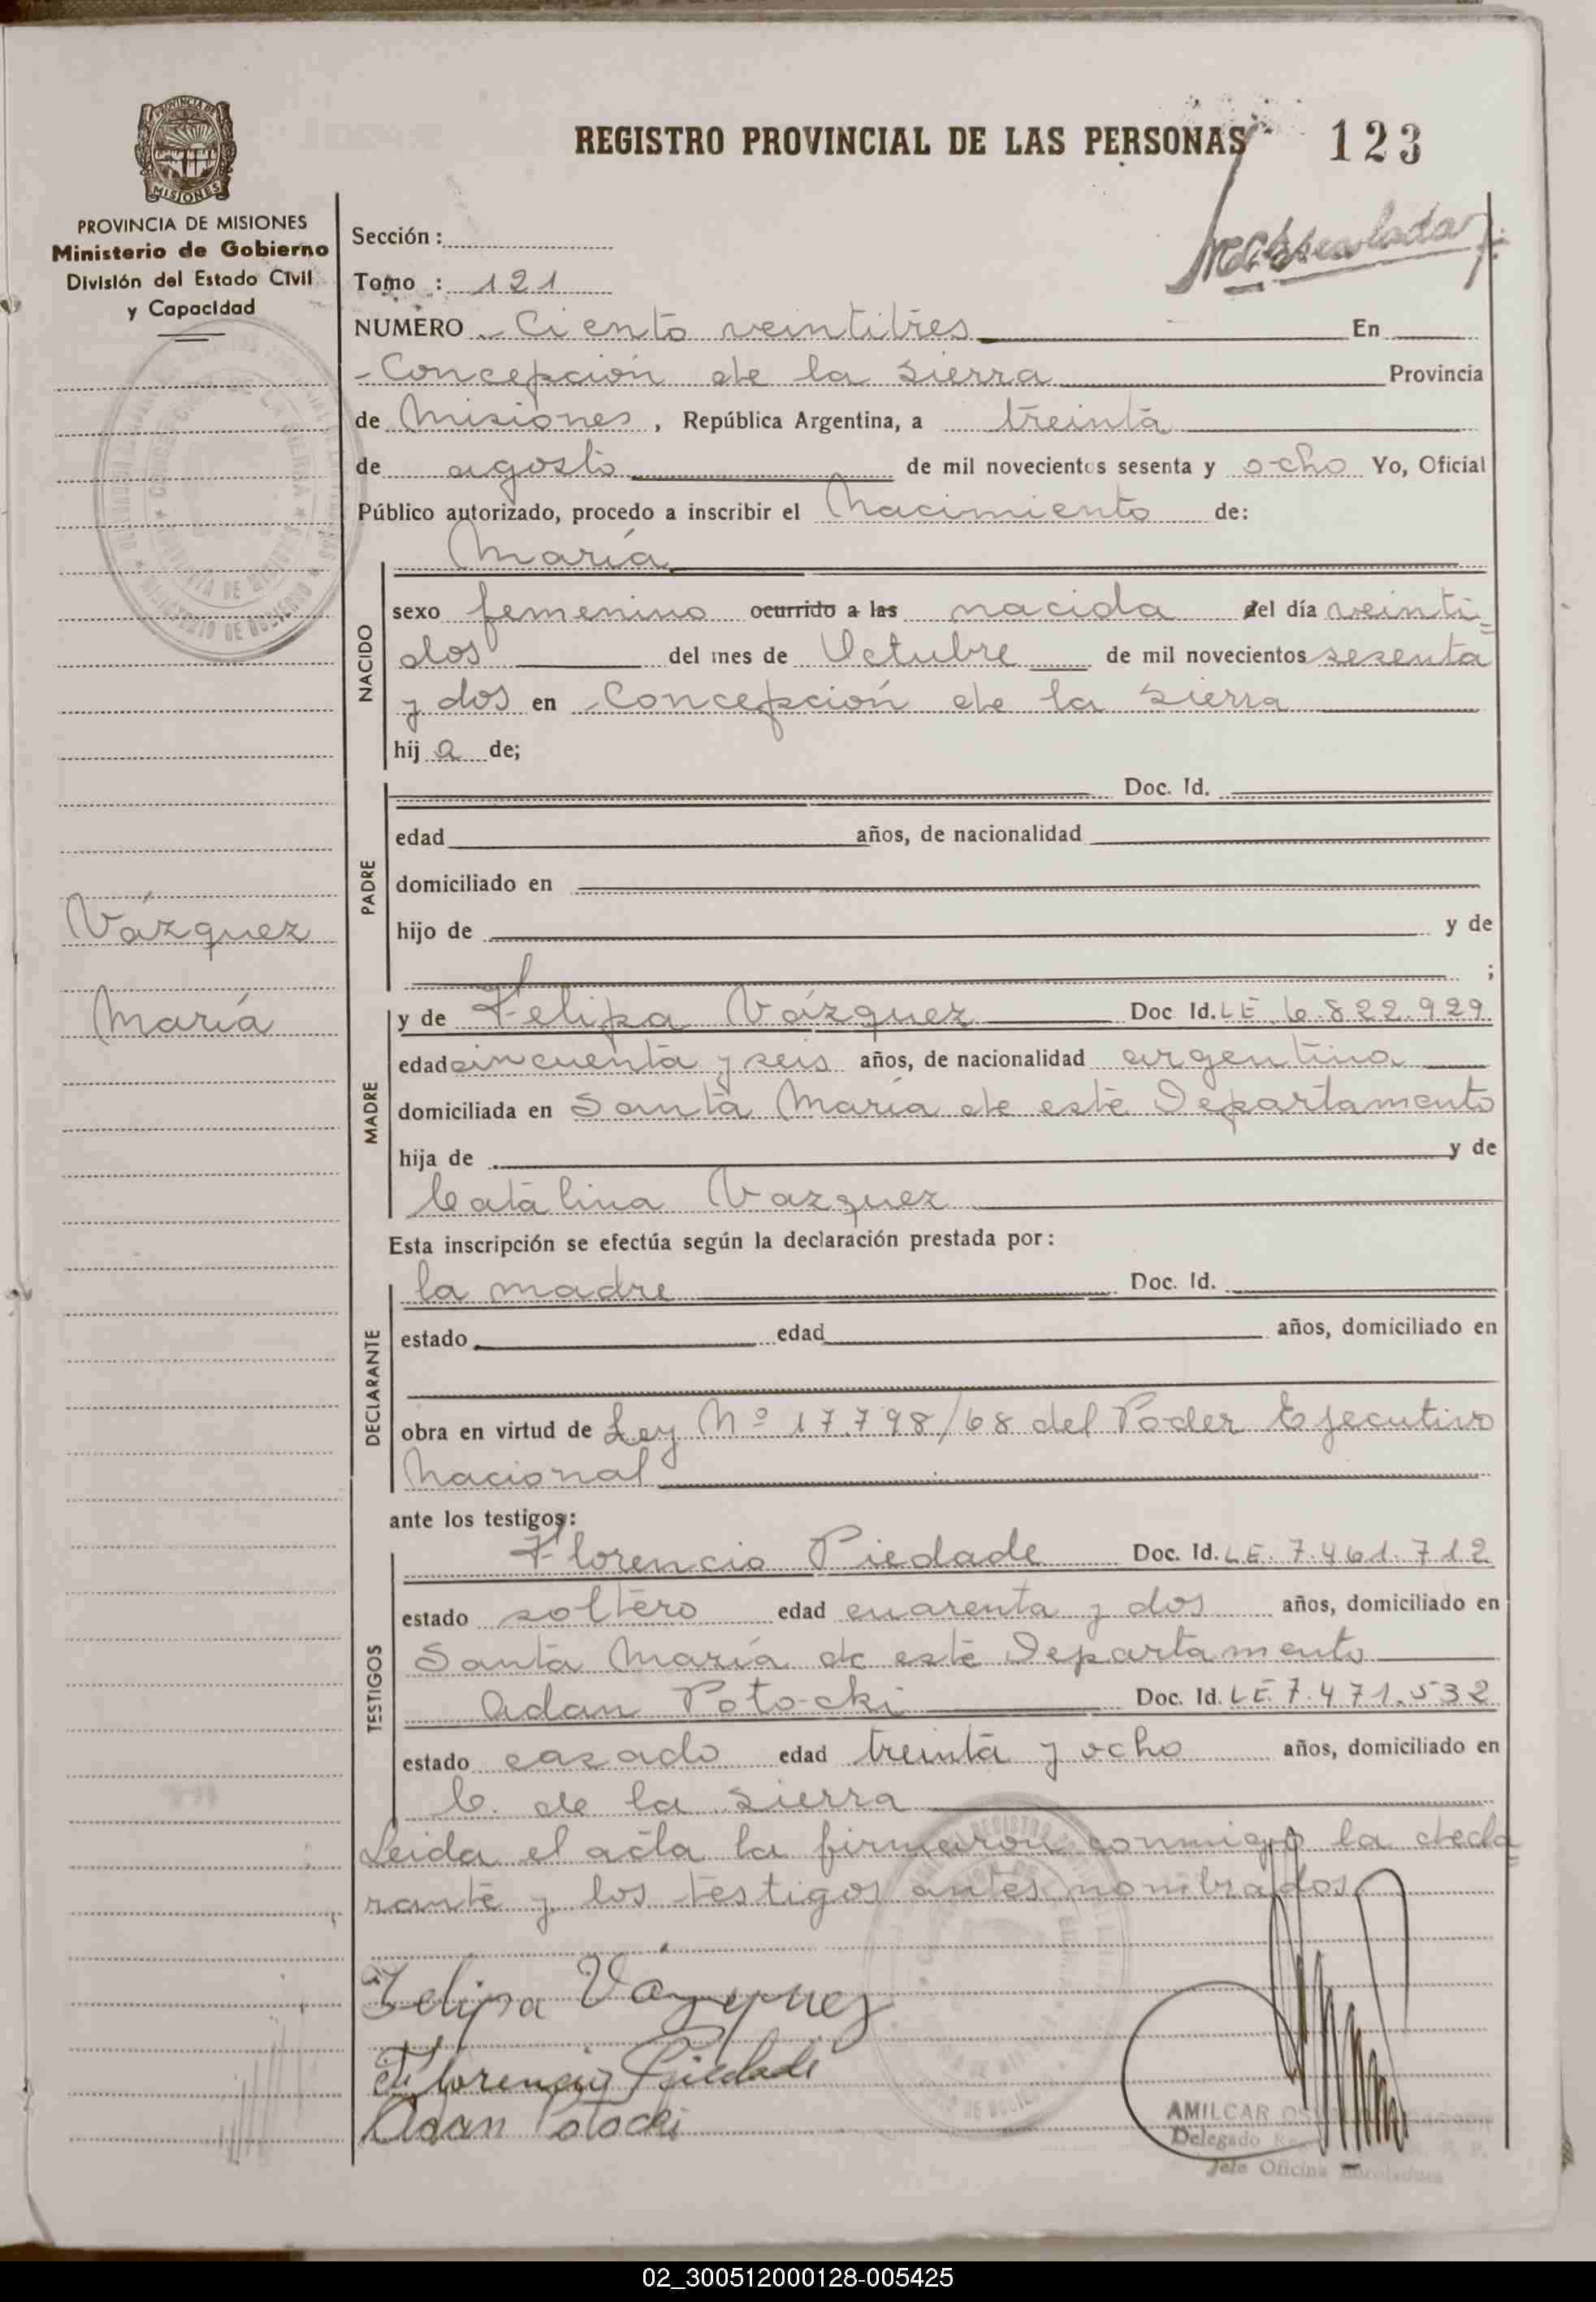 REGISTRO PROVINCIAL DE LAS PERSONAS 123
PROVINCIA DE MISIONES
PROVINCIA DE MISIONES
Ministerio de Gobierno
División del Estado Civil
y Capacidad
Sección :
Tomo : 121
NUMERO Ciento veintitres En
Concepción de la Sierra Provincia
de Misiones, República Argentina, a treinta
de agosto de mil novecientos sesenta y ocho Yo, Oficial
Público autorizado, procedo a inscribir el Nacimiento de:
María
NACIDO
sexo femenino ocurrido a las nacida del día veinti=
dos del mes de Octubre de mil novecientos sesenta
y dos en Concepción de la Sierra
hij a de;
PADRE
Doc. Id.
edad años, de nacionalidad
domiciliado en
hijo de y de
;
Vázquez
María
MADRE
y de Felipa Vázquez Doc Id. LE 6.822.929
edad cincuenta y seis años, de nacionalidad argentina
domiciliada en Santa María de este Departamento
hija de y de
Catalina Vazquez
Esta inscripción se efectúa según la declaración prestada por :
DECLARANTE
la madre Doc. Id.
estado edad años, domiciliado en
obra en virtud de Ley Nº 17.798/68 del Poder Ejecutivo
Nacional
ante los testigos:
TESTIGOS
Florencio Piedade Doc. Id. LE. 7.461.712
estado soltero edad cuarenta y dos años, domiciliado en
Santa María de este Departamento
Adan Potocki Doc. Id. LE. 7.471.532
estado casado edad treinta y ocho años, domiciliado en
C. de la Sierra
Leida el acta la firmaron conmigo la decla=
rante y los testigos antes nombrados
Felipa Vázquez
Florencio Piedade
Adan Potocki
AMILCAR
Delegado
Jefe Oficina Enroladora
02_300512000128-005425